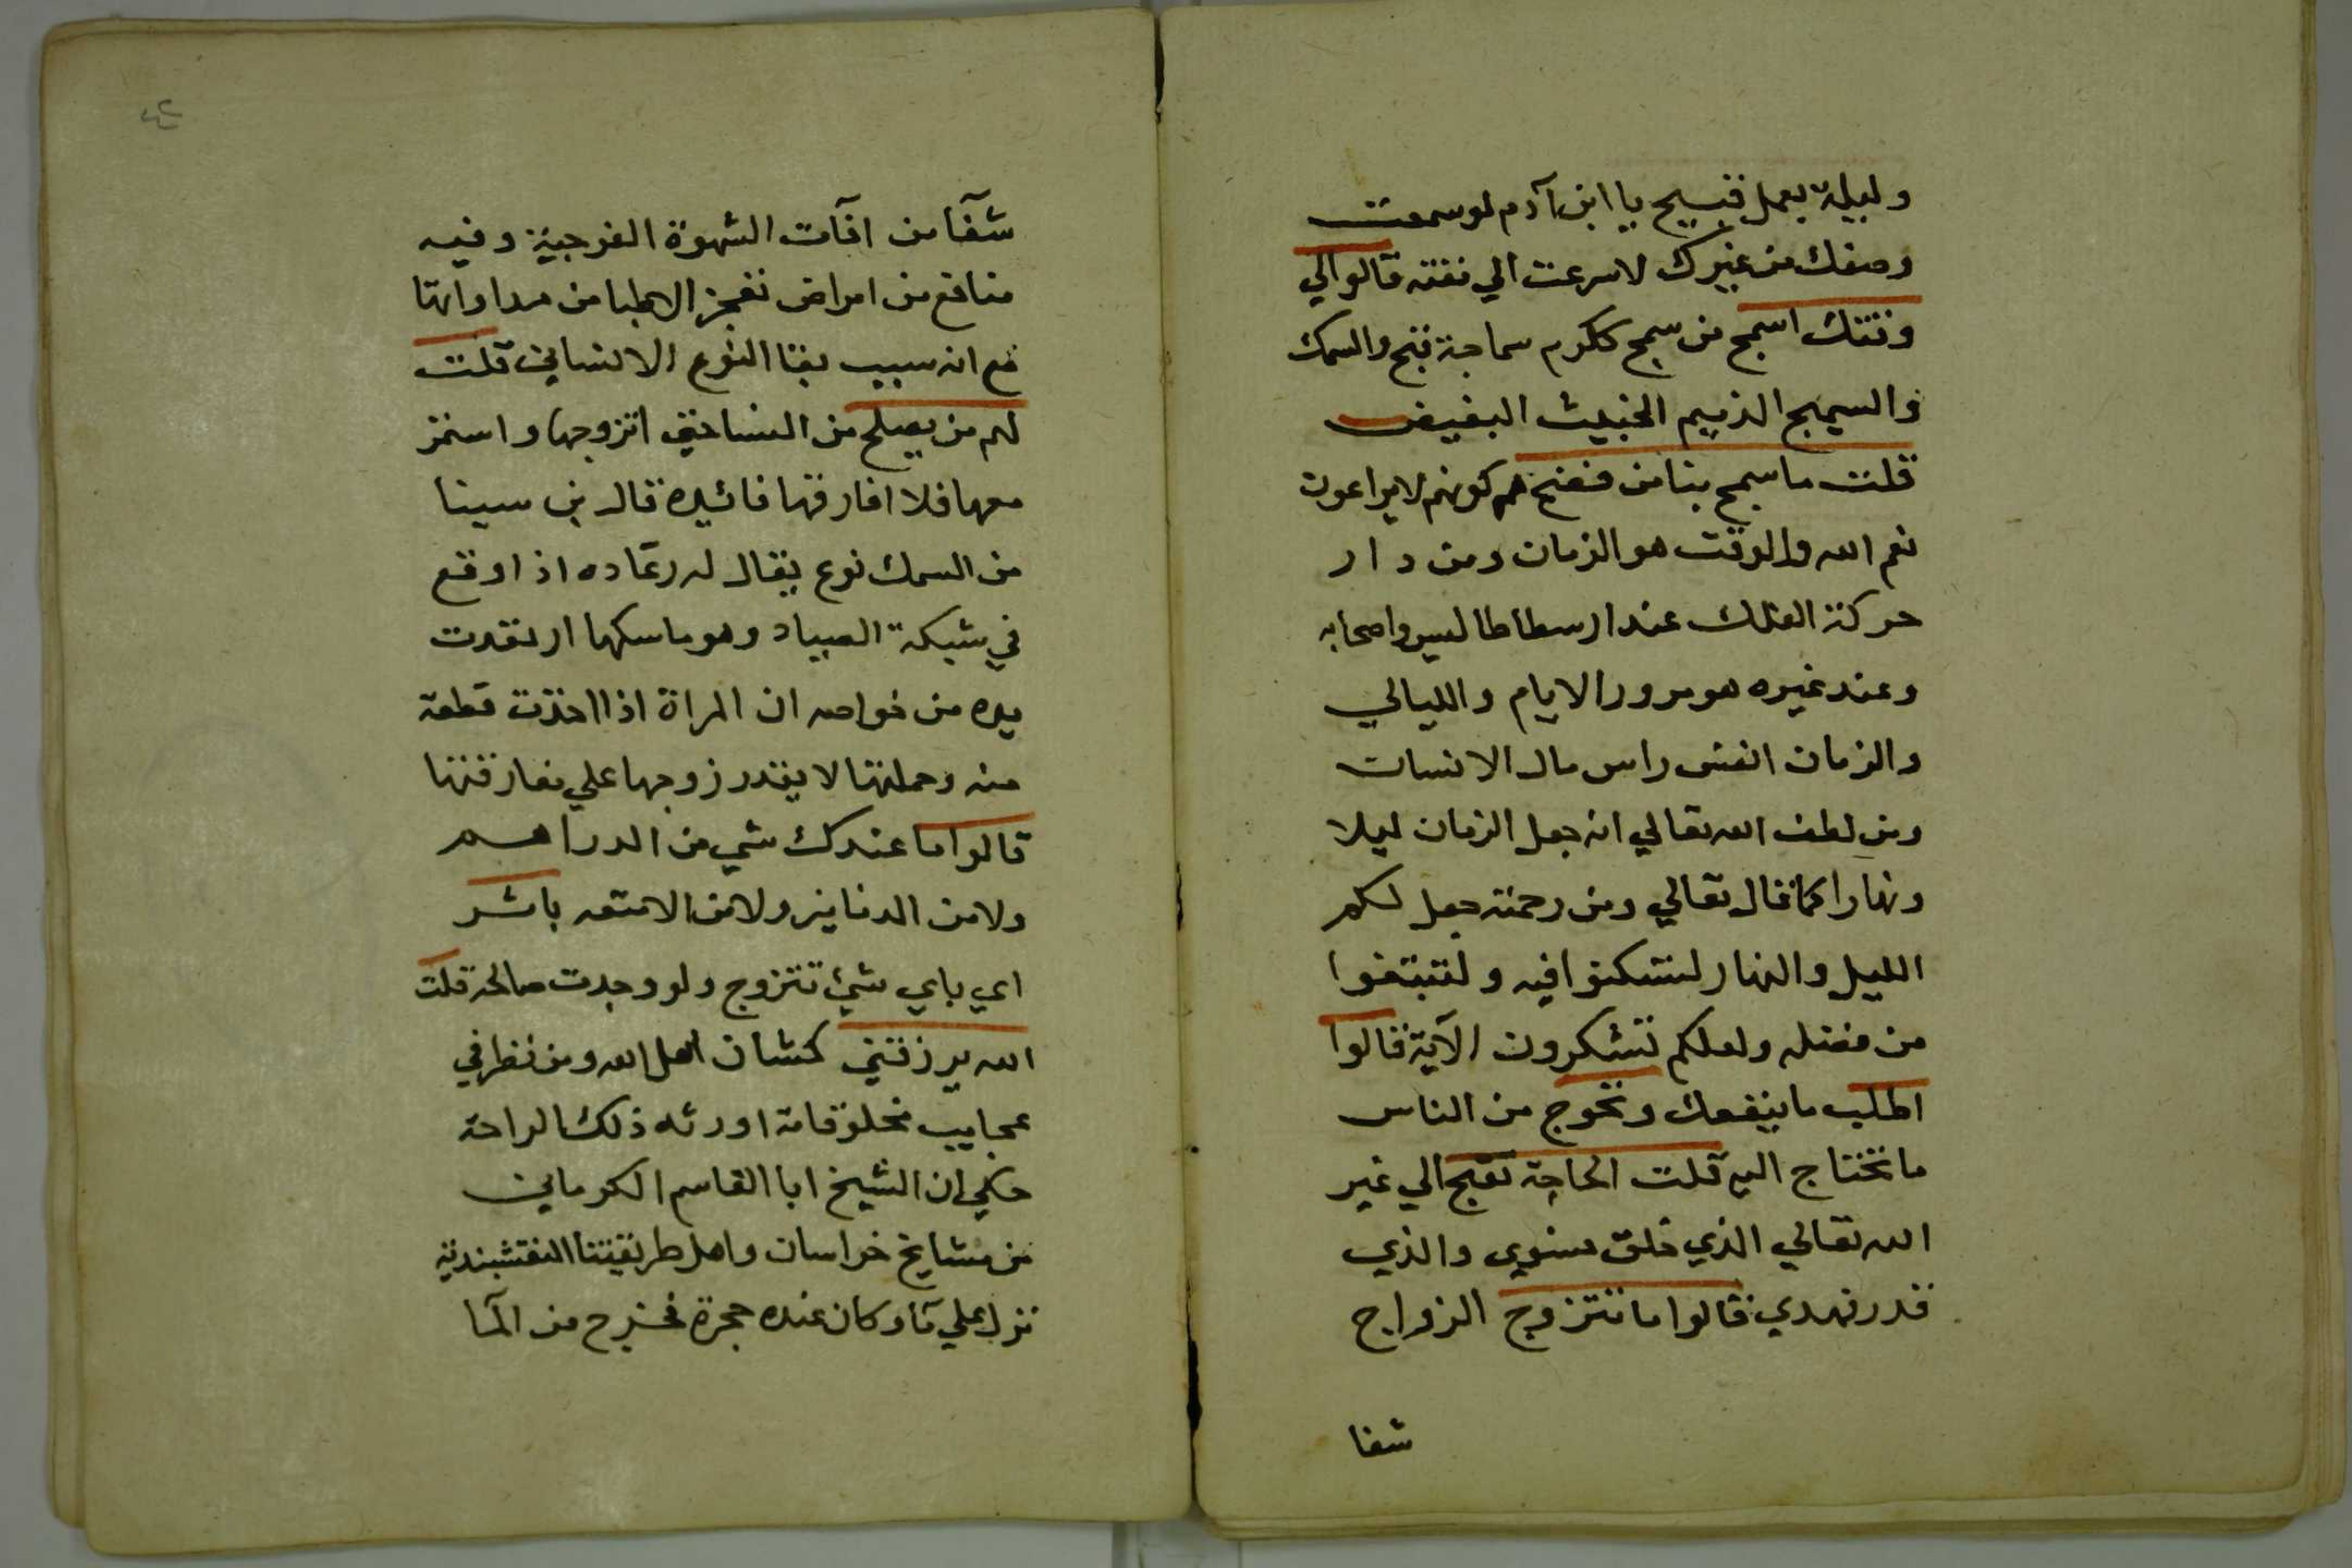 وليلة بعمل قبيح يا ابن آدم لو سمعت
وصفك من غيرك لاسرعت الي مقته قالوا لي
وقتك اسمج من سمج ككرم سماجة قبح والسمك
والسميج الذميم الخبيث البغيض
قلت ما سمج بنا من كونهم لا يراعون
نعم الله والوقت هو الزمان ومن دار
حركة الفلك عند ارسطاطاليس واصحابه
وعند غيره هو مرور الايام والليالي
والزمان انفس راس مال الانسان
ومن لطف الله تعالي انه جعل الزمان ليلا
ونهارا كما قال تعالي ومن رحمته جعل لكم
الليل والنهار لتسكنوا فيه ولتبتغوا
من فضله ولعلكم تشكرون الآية قالوا
اطلب ما ينفعك وتحوج من الناس
ما تحتاج اليه قلت الحاجة تقبح الي غير
الله تعالي الذي خلق فسوي والذي
قدر فهدي قالوا ما تتزوج الزواج
شفا
٤٢
شفآ من افآت الشهوة الفرجية وفيه
منافع من امراض تعجز الاطبا من مداواتها
مع انه سبب بقا النوع الانساني قلت
لهم من يصلح من النسا حتي اتزوجها واستمر
معها فلا افارقها فائيده قال بن سينا
من السمك نوع يقال له رعاده اذا وقع
في شبكة الصياد وهو ماسكها ارتعدت
يده من خواصه ان المراة اذا اخذت قطعة
منه وحملتها لا يقدر زوجها علي مفارقتها
قالوا ما عندك شي من الدراهم
ولا من الدنانير ولا من الامتعه بانش
اي باي شئ تتزوج ولو وجدت صالحة قلت
الله يرزقني كشان اهل الله ومن نظر في
عجايب مخلوقاته اورثه ذلك الراحة
حكي ان الشيخ ابا القاسم الكرماني
من مشايخ خراسان واهل طريقتنا النقشبندية
نزل علي مآ وكان عنده حجرة فخرج من المآ